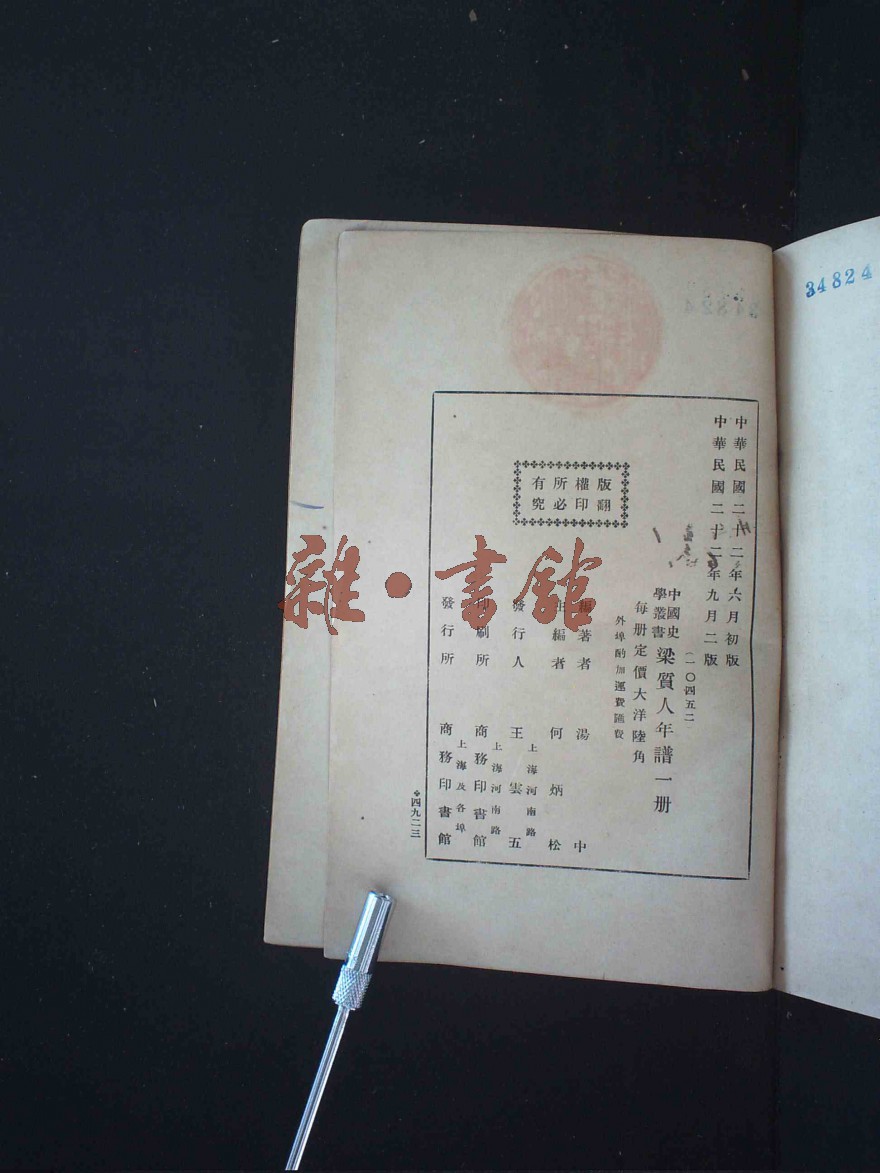 中華民國二十二年六月初版
中華民國二十二年九月二版
(一〇四五二)
中國史學叢書 梁質人年譜一册
每册定價大洋陸角
外埠酌加運費匯費
版權所有
翻印必究
編著者 湯中
主編者 何炳松
發行人 王雲五
上海河南路
印刷所 商務印書館
上海河南路
發行所 商務印書館
上海及各埠
四九二三
34824
雜·書館